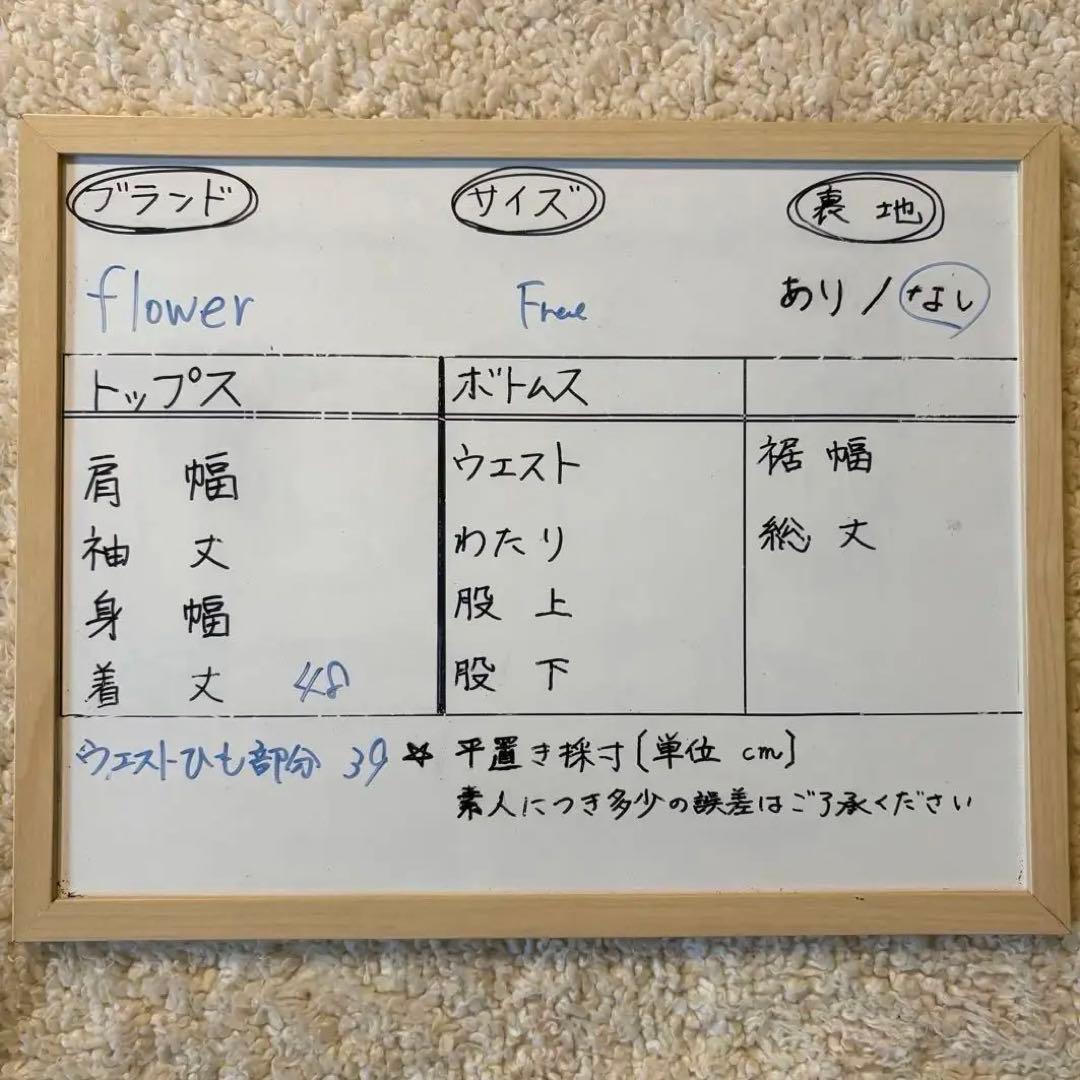 ブランド サイズ 裏地
flower Free あり/なし
トップス ボトムス
肩幅 ウエスト 裾幅
袖丈 わたり 総丈
身幅 股上
着丈 48 股下
ウエストひも部分 39 ☆ 平置き採寸〔単位 cm〕
素人につき多少の誤差はご了承ください